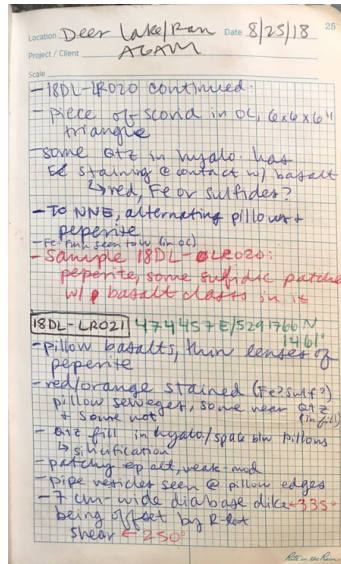 Location Deer Lake/Ran Date 8/25/18 25
Project / Client AGAM
Scale
-18DL-LR020 continued.
- piece of scoria in OC, 6x6x6"
triangle
-some qtz in hyalo. has
staining @ contact w/ basalt
↳ red, Fe or sulfides?
-To NNE, alternating pillows +
peperite
-Fe seen to W (in OC)
- Sample 18DL-LR020:
peperite, some sulfidic patches
w/ basalt clasts in it
18DL-LR021 474457E/5291760N
1461'
-pillow basalts, thin lenses of
peperite
-red/orange stained (Fe? sulf?)
pillow selveges, some near qtz
+ some not (infill)
- qtz fill in hyalo/space b/w pillows
↳ silicification
-patchy ep alt, weak-mod
-pipe vesicles seen @ pillow edges
-7 cm-wide diabase dike ←335°
being offset by R-lat
shear ←250°
Rite in the Rain